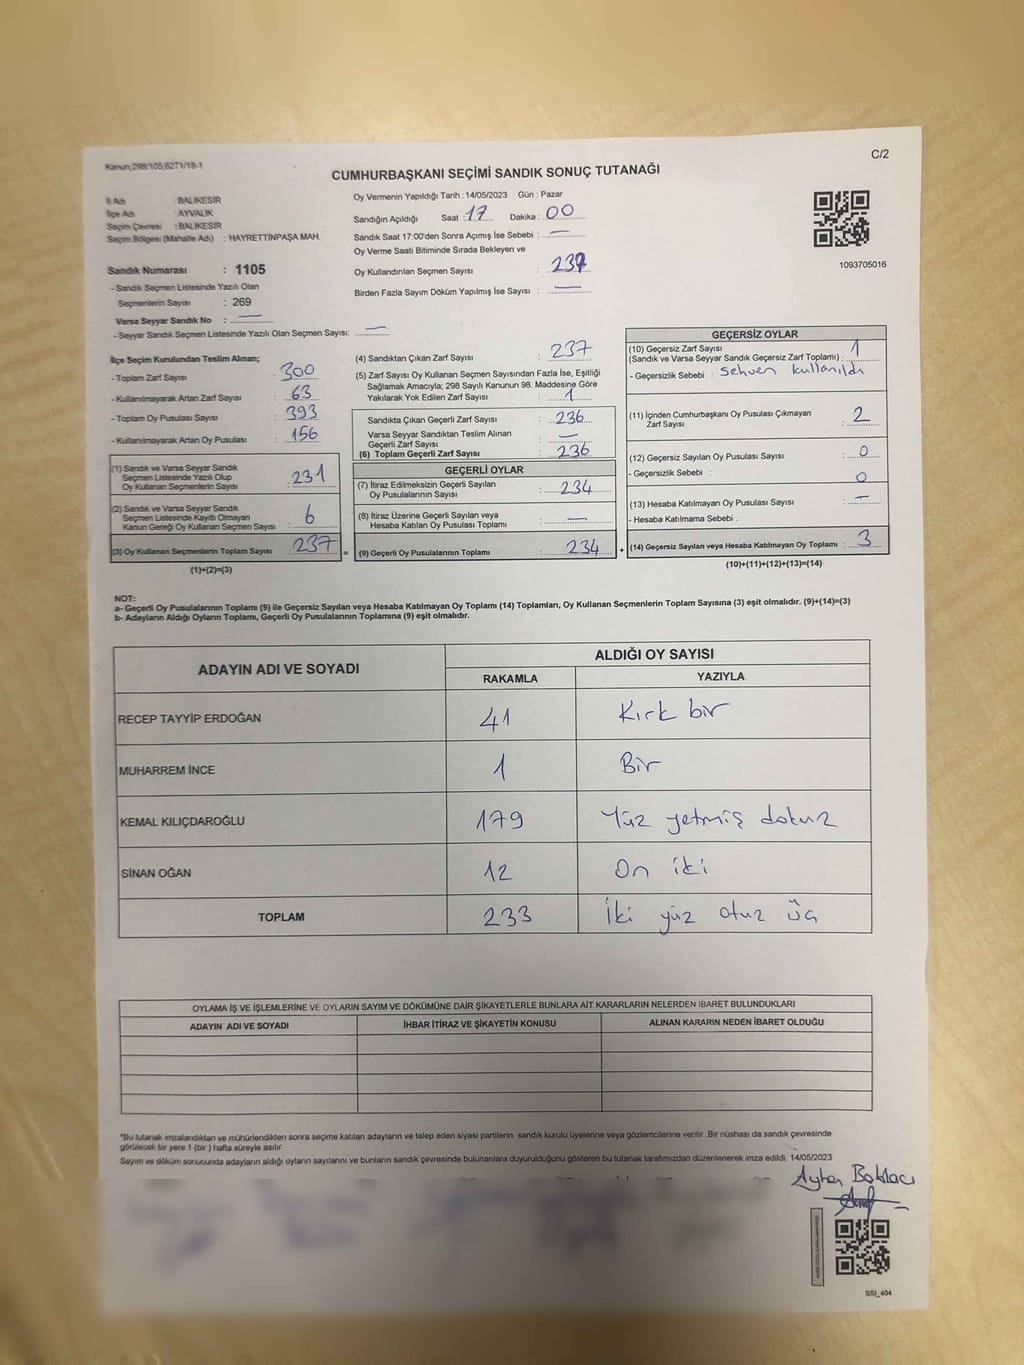 Kanun;298/105;6271/18-1
C/2
CUMHURBAŞKANI SEÇİMİ SANDIK SONUÇ TUTANAĞI
İl Adı : BALIKESİR
İlçe Adı : AYVALIK
Seçim Çevresi : BALIKESİR
Seçim Bölgesi (Mahalle Adı) : HAYRETTİNPAŞA MAH.
Oy Vermenin Yapıldığı Tarih : 14/05/2023 Gün : Pazar
Sandığın Açıldığı Saat : 17 Dakika : 00
Sandık Saat 17:00'den Sonra Açımış İse Sebebi : —
Oy Verme Saati Bitiminde Sırada Bekleyen ve
Oy Kullandırılan Seçmen Sayısı : 237
Birden Fazla Sayım Döküm Yapılmış İse Sayısı : —
1093705016
Sandık Numarası : 1105
- Sandık Seçmen Listesinde Yazılı Olan
Seçmenlerin Sayısı : 269
Varsa Seyyar Sandık No : —
- Seyyar Sandık Seçmen Listesinde Yazılı Olan Seçmen Sayısı: —
İlçe Seçim Kurulundan Teslim Alınan;
- Toplam Zarf Sayısı : 300
- Kullanılmayarak Artan Zarf Sayısı : 63
- Toplam Oy Pusulası Sayısı : 393
- Kullanılmayarak Artan Oy Pusulası : 156
(1) Sandık ve Varsa Seyyar Sandık
Seçmen Listesinde Yazılı Olup
Oy Kullanan Seçmenlerin Sayısı : 231
(2) Sandık ve Varsa Seyyar Sandık
Seçmen Listesinde Kayıtlı Olmayan
Kanun Gereği Oy Kullanan Seçmen Sayısı : 6
(3) Oy Kullanan Seçmenlerin Toplam Sayısı : 237 =
(1)+(2)=(3)
(4) Sandıktan Çıkan Zarf Sayısı : 237
(5) Zarf Sayısı Oy Kullanan Seçmen Sayısından Fazla İse, Eşitliği
Sağlamak Amacıyla; 298 Sayılı Kanunun 98. Maddesine Göre
Yakılarak Yok Edilen Zarf Sayısı : 1
Sandıkta Çıkan Geçerli Zarf Sayısı : 236
Varsa Seyyar Sandıktan Teslim Alınan
Geçerli Zarf Sayısı : —
(6) Toplam Geçerli Zarf Sayısı : 236
GEÇERLİ OYLAR
(7) İtiraz Edilmeksizin Geçerli Sayılan
Oy Pusulalarının Sayısı : 234
(8) İtiraz Üzerine Geçerli Sayılan veya
Hesaba Katılan Oy Pusulası Toplamı : —
(9) Geçerli Oy Pusulalarının Toplamı : 234 +
GEÇERSİZ OYLAR
(10) Geçersiz Zarf Sayısı
(Sandık ve Varsa Seyyar Sandık Geçersiz Zarf Toplamı) : 1
- Geçersizlik Sebebi : Sehven kullanıldı
(11) İçinden Cumhurbaşkanı Oy Pusulası Çıkmayan
Zarf Sayısı : 2
(12) Geçersiz Sayılan Oy Pusulası Sayısı : 0
- Geçersizlik Sebebi : 0
(13) Hesaba Katılmayan Oy Pusulası Sayısı : —
- Hesaba Katılmama Sebebi :
(14) Geçersiz Sayılan veya Hesaba Katılmayan Oy Toplamı : 3
(10)+(11)+(12)+(13)=(14)
NOT:
a- Geçerli Oy Pusulalarının Toplamı (9) ile Geçersiz Sayılan veya Hesaba Katılmayan Oy Toplamı (14) Toplamları, Oy Kullanan Seçmenlerin Toplam Sayısına (3) eşit olmalıdır. (9)+(14)=(3)
b- Adayların Aldığı Oyların Toplamı, Geçerli Oy Pusulalarının Toplamına (9) eşit olmalıdır.
ADAYIN ADI VE SOYADI ALDIĞI OY SAYISI
RAKAMLA YAZIYLA
RECEP TAYYİP ERDOĞAN 41 Kırk bir
MUHARREM İNCE 1 Bir
KEMAL KILIÇDAROĞLU 179 Yüz yetmiş dokuz
SİNAN OĞAN 12 On iki
TOPLAM 233 İki yüz otuz üç
OYLAMA İŞ VE İŞLEMLERİNE VE OYLARIN SAYIM VE DÖKÜMÜNE DAİR ŞİKAYETLERLE BUNLARA AİT KARARLARIN NELERDEN İBARET BULUNDUKLARI
ADAYIN ADI VE SOYADI İHBAR İTİRAZ VE ŞİKAYETİN KONUSU ALINAN KARARIN NEDEN İBARET OLDUĞU
*Bu tutanak imzalandıktan ve mühürlendikten sonra seçime katılan adayların ve talep eden siyasi partilerin sandık kurulu üyelerine veya gözlemcilerine verilir. Bir nüshası da sandık çevresinde
görülecek bir yere 1 (bir) hafta süreyle asılır.
Sayım ve döküm sonucunda adayların aldığı oyların sayılarını ve bunların sandık çevresinde bulunanlara duyurulduğunu gösteren bu tutanak tarafımızdan düzenlenerek imza edildi. 14/05/2023
SSI_404